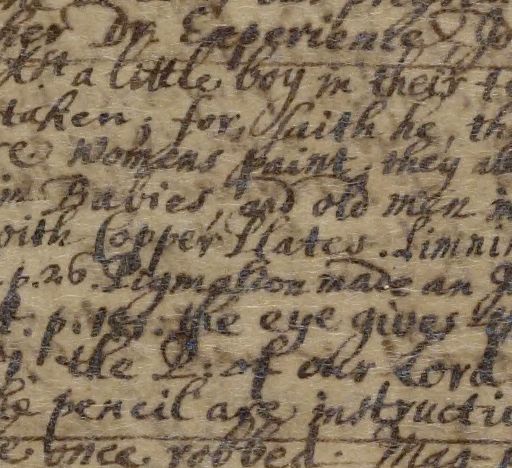 her Dr Experience,
a little boy in their
taken, for, saith he, th
Womens paint, they
in Babies, and old men in
with Copper Plates. Limnin
p. 26. Pigmalion made an
p. 163. the eye gives
the P. of our Lord
pencil are instructi
once robbed. Mar